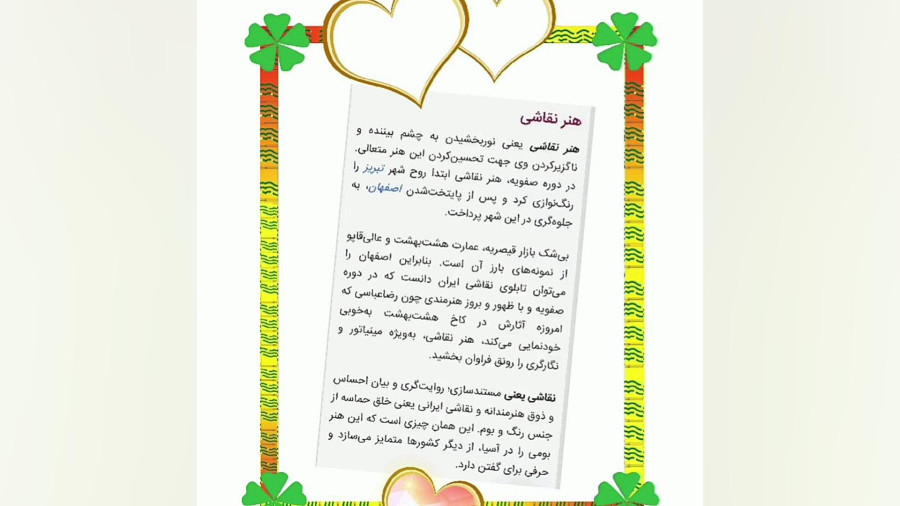 هنر نقاشی
هنر نقاشی یعنی نوربخشیدن به چشم بیننده و
ناگزیرکردن وی جهت تحسین‌کردن این هنر متعالی.
در دوره صفویه، هنر نقاشی ابتدا روح شهر تبریز را
رنگ‌نوازی کرد و پس از پایتخت‌شدن اصفهان، به
جلوه‌گری در این شهر پرداخت.
بی‌شک بازار قیصریه، عمارت هشت‌بهشت و عالی‌قاپو
از نمونه‌های بارز آن است. بنابراین اصفهان را
می‌توان تابلوی نقاشی ایران دانست که در دوره
صفویه و با ظهور و بروز هنرمندی چون رضاعباسی که
امروزه آثارش در کاخ هشت‌بهشت به‌خوبی
خودنمایی می‌کند، هنر نقاشی، به‌ویژه مینیاتور و
نگارگری را رونق فراوان بخشید.
نقاشی یعنی مستندسازی، روایت‌گری و بیان احساس
و ذوق هنرمندانه و نقاشی ایرانی یعنی خلق حماسه از
جنس رنگ و بوم. این همان چیزی است که این هنر
بومی را در آسیا، از دیگر کشورها متمایز می‌سازد و
حرفی برای گفتن دارد.